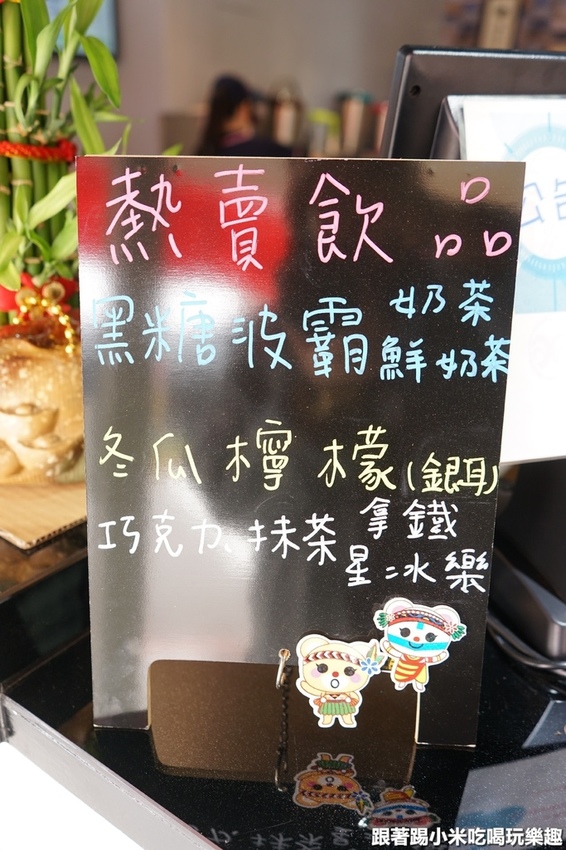 熱賣飲品
黑糖波霸 奶茶
鮮奶茶
冬瓜檸檬(銀耳)
巧克力、抹茶 拿鐵
星冰樂
公告
跟著踢小米吃喝玩樂趣